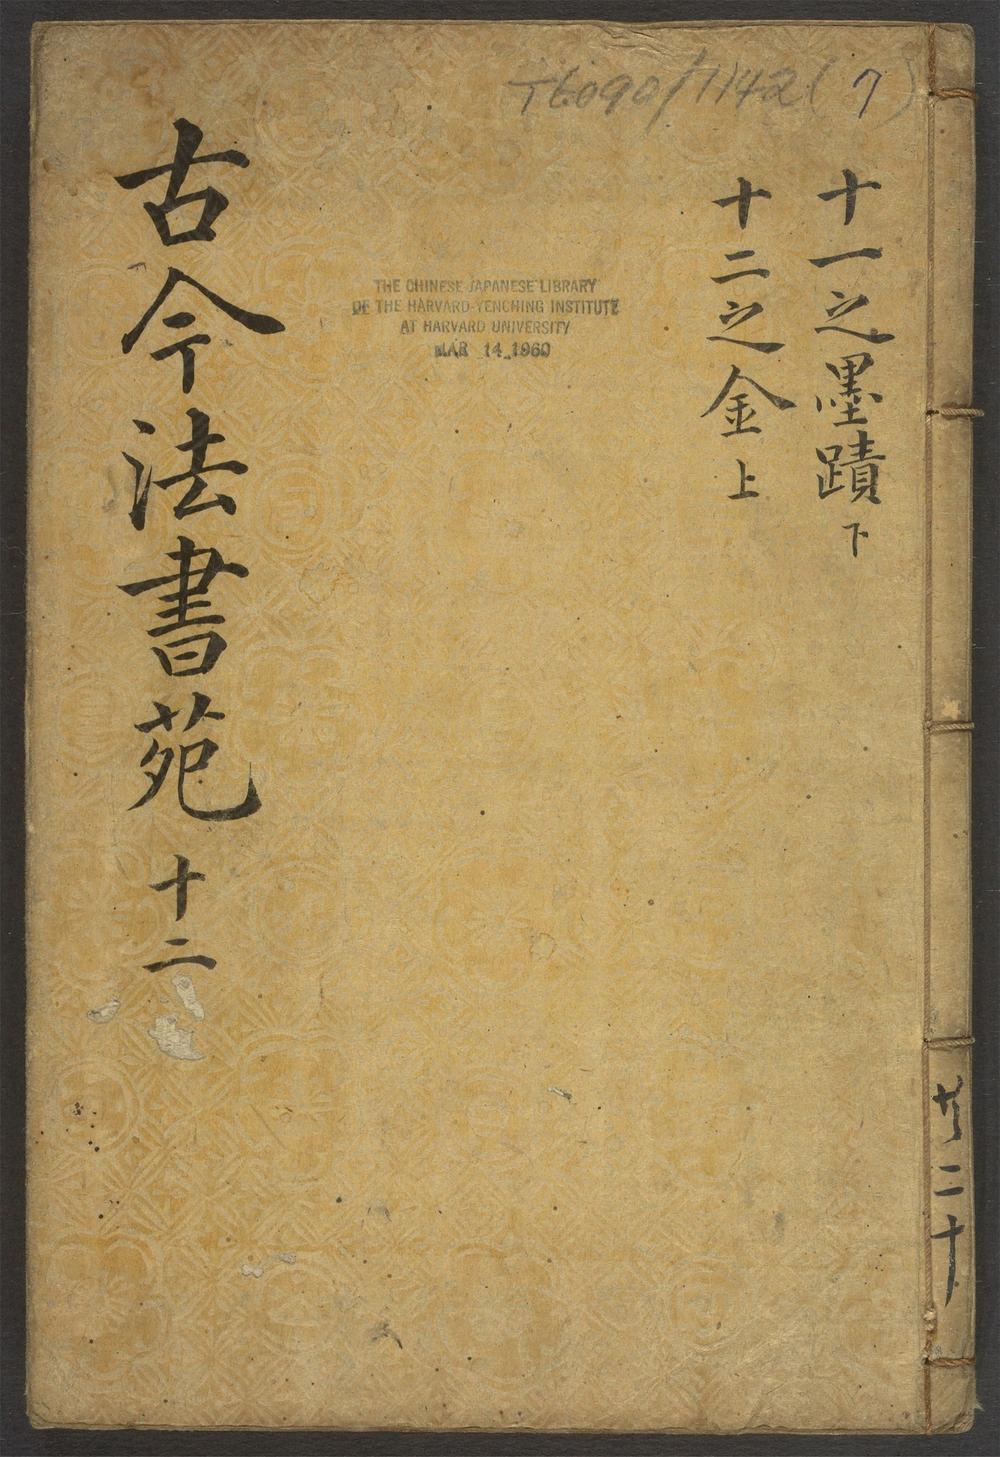 T6090/1142(7)
十一之墨蹟下
十二之金上
THE CHINESE JAPANESE LIBRARY
OF THE HARVARD-YENCHING INSTITUTE
AT HARVARD UNIVERSITY
MAR 14 1960
古今法書苑 十二
二十